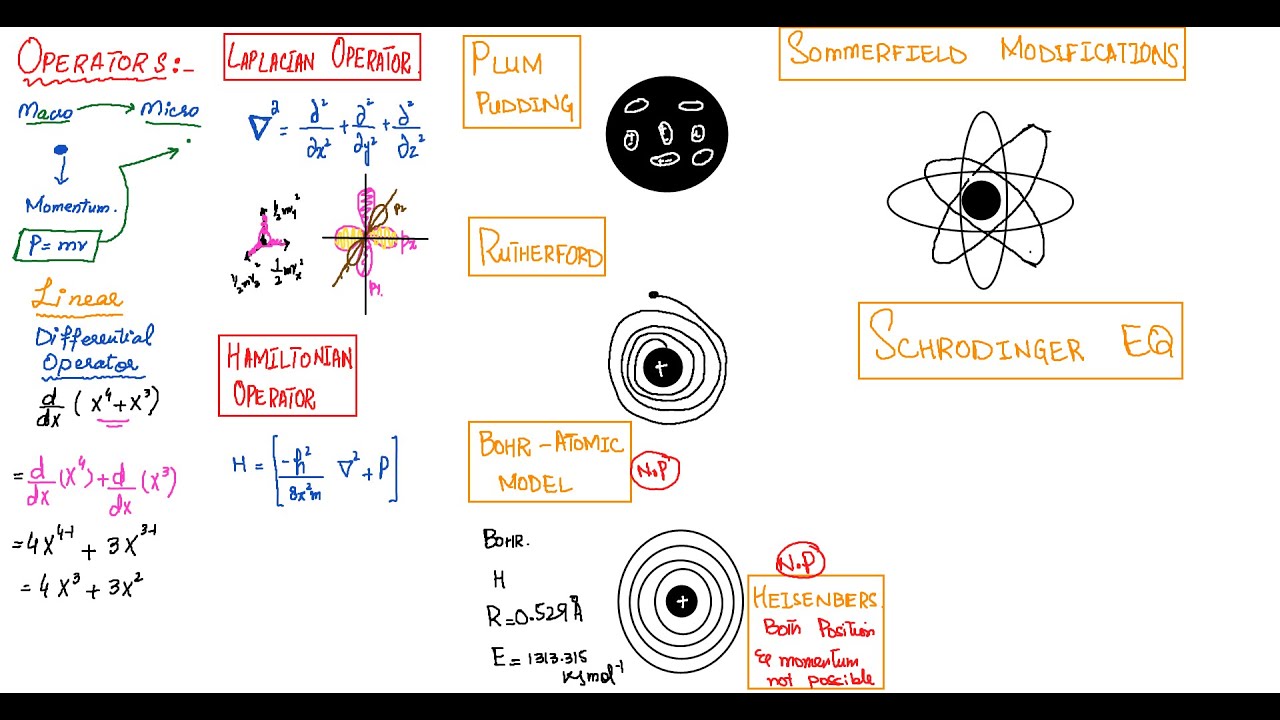 OPERATORS:-
Macro → Micro
Momentum.
P = mv
Linear
Differential
Operator
d/dx (x⁴ + x³)
= d/dx (x⁴) + d/dx (x³)
= 4x⁴⁻¹ + 3x³⁻¹
= 4x³ + 3x²
LAPLACIAN OPERATOR.
∇² = ∂²/∂x² + ∂²/∂y² + ∂²/∂z²
½mv²y
½mv²z
½mv²x
Pz
Px
Py.
HAMILTONIAN
OPERATOR
H = [-h²/8π²m ∇² + P]
PLUM
PUDDING
RUTHERFORD
+
BOHR - ATOMIC
MODEL
N.P
BOHR.
H
R = 0.529 Å
E = 1313.315
KJmol⁻¹
+
N.P
HEISENBERS.
Both Position
& momentum
not possible
SOMMERFIELD MODIFICATIONS.
SCHRODINGER EQ